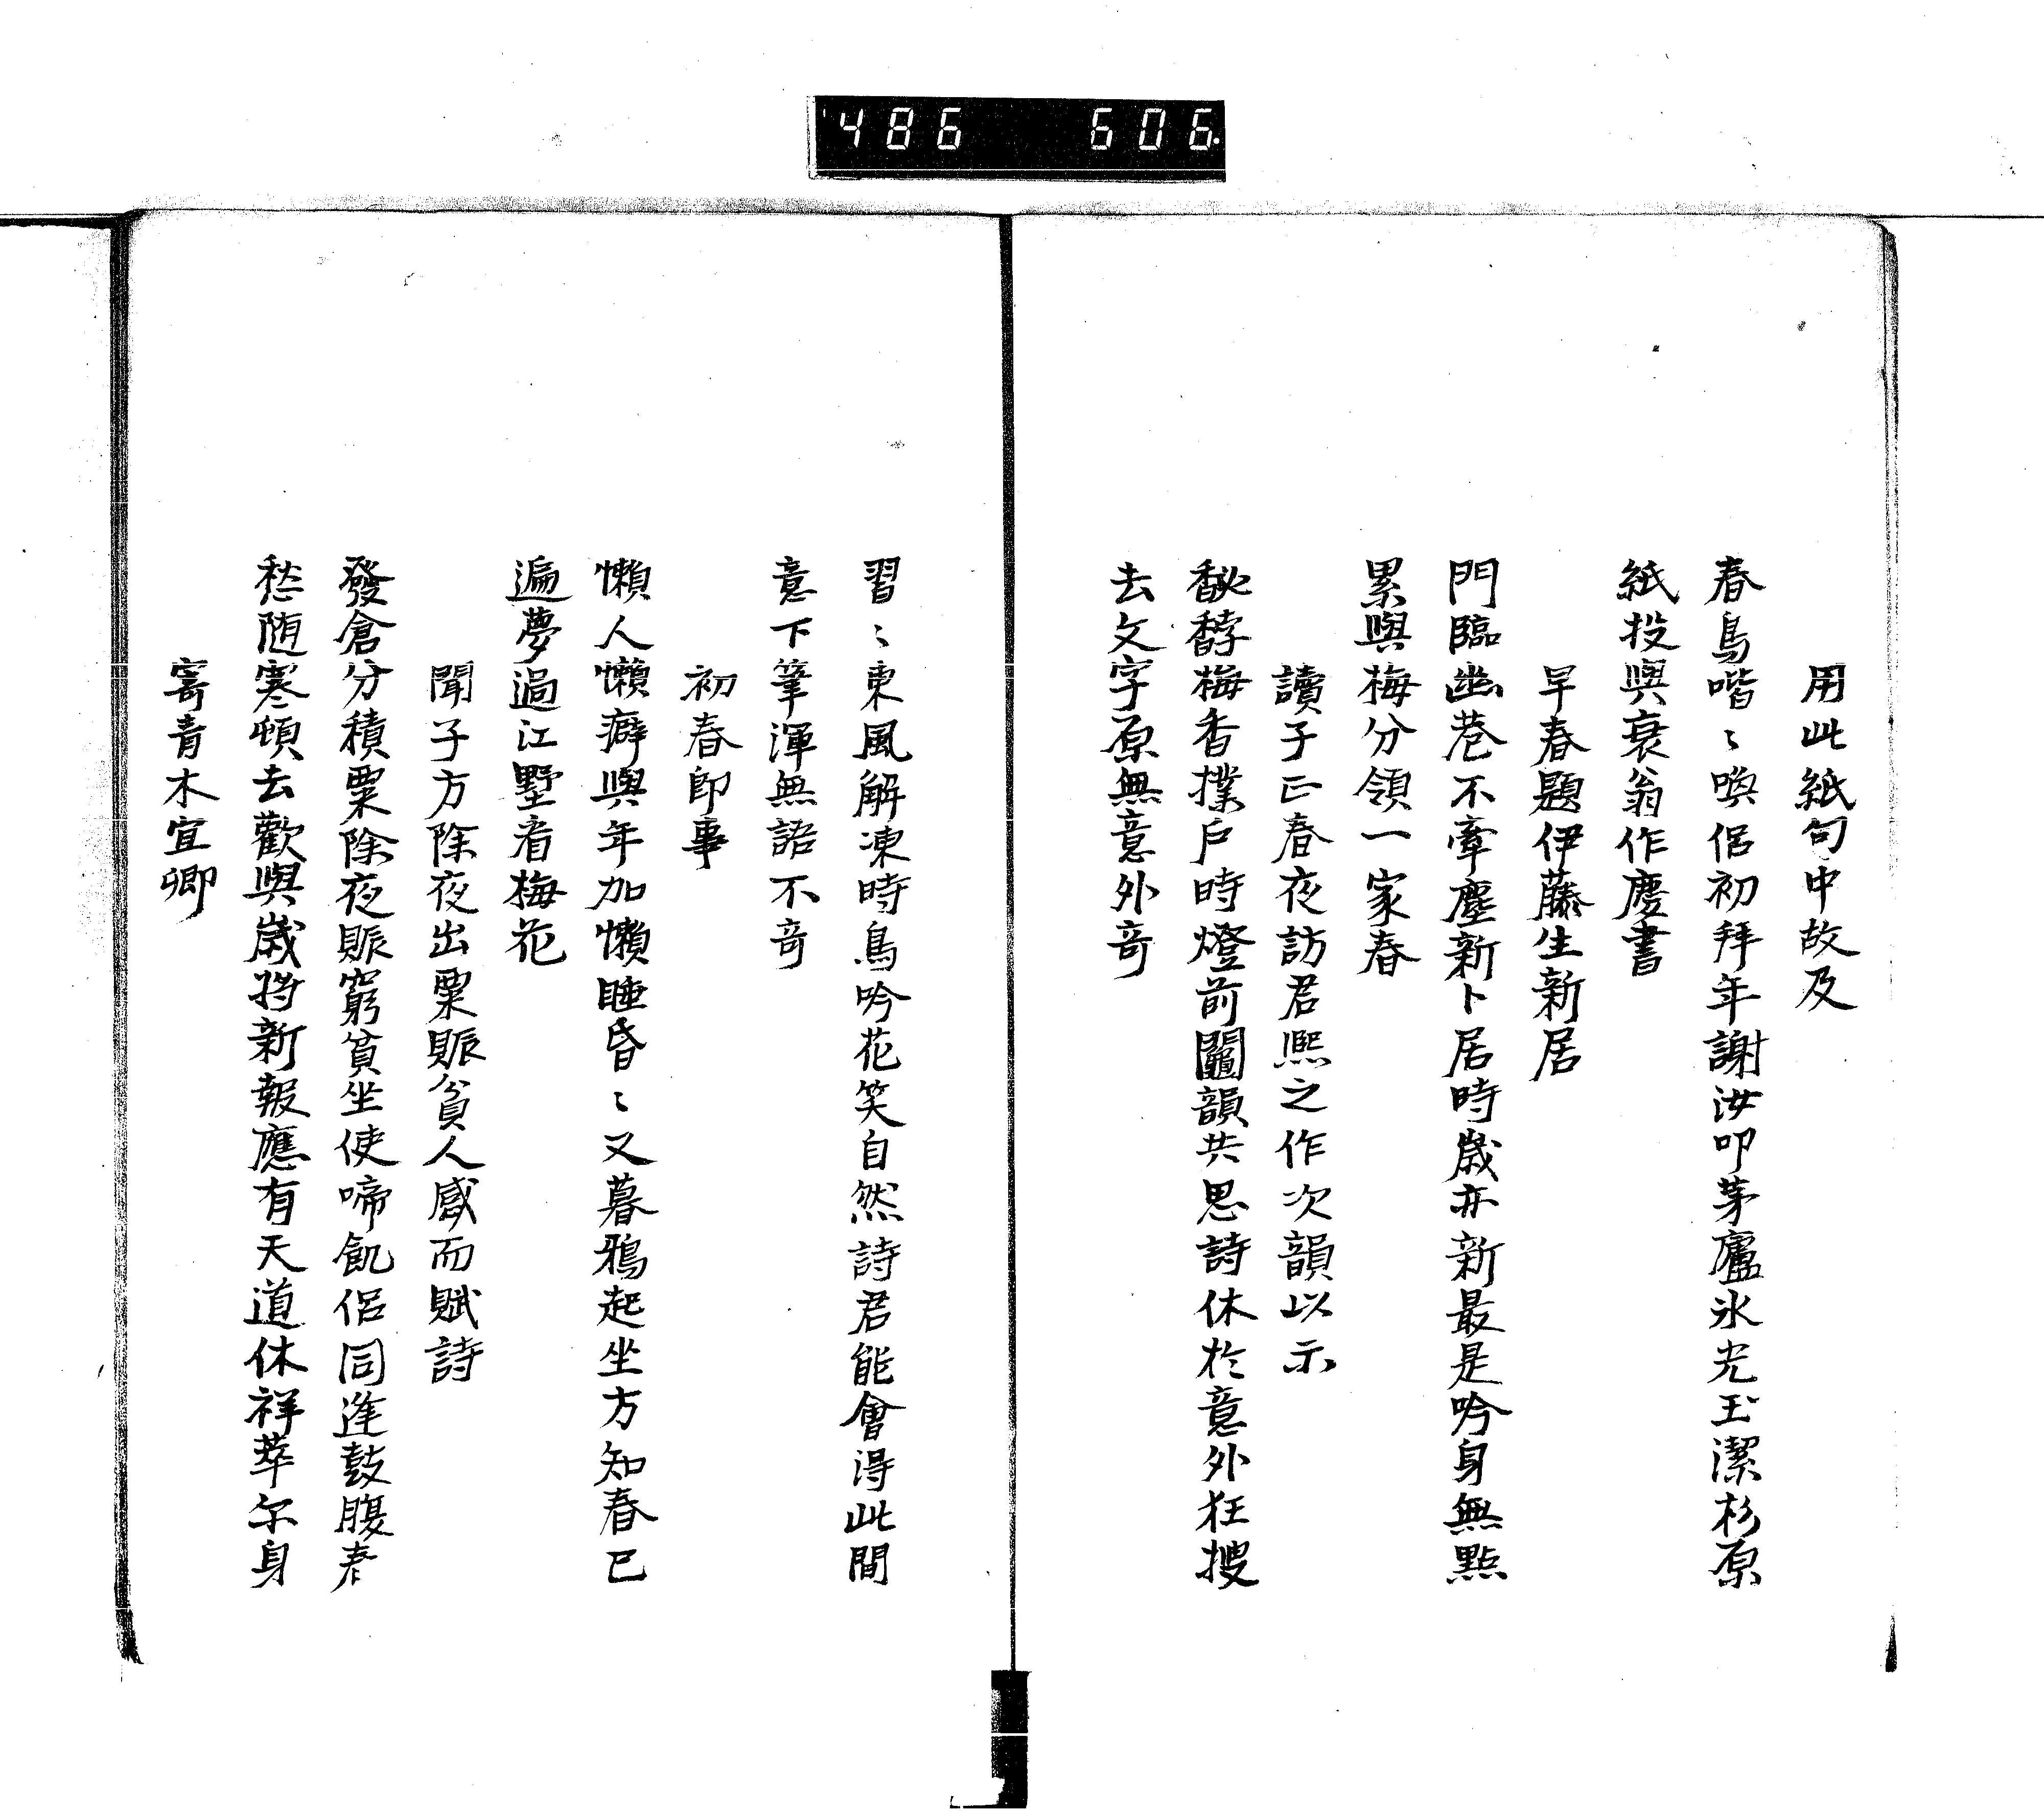 486 606.
用此紙句中故及
春鳥喈〻喚侶初拜年謝汝叩茅廬氷光玉潔杉原
紙投與衰翁作慶書
早春題伊藤生新居
門臨幽巷不牽塵新卜居時歳亦新最是吟身無點
累與梅分領一家春
讀子正春夜訪君熙之作次韻以示
馝馞梅香撲戸時燈前鬮韻共思詩休於意外狂搜
去文字原無意外奇
習〻東風解凍時鳥吟花笑自然詩君能會得此間
意下筆渾無語不奇
初春即事
懶人懶癖與年加懶睡昏〻又暮鴉起坐方知春已
遍夢過江墅看梅花
聞子方除夜出粟賑貧人感而賦詩
發倉分積粟除夜賑窮貧坐使啼飢侶同逢鼓腹春
愁随寒頓去歡與歳将新報應有天道休祥萃尓身
寄青木宜卿